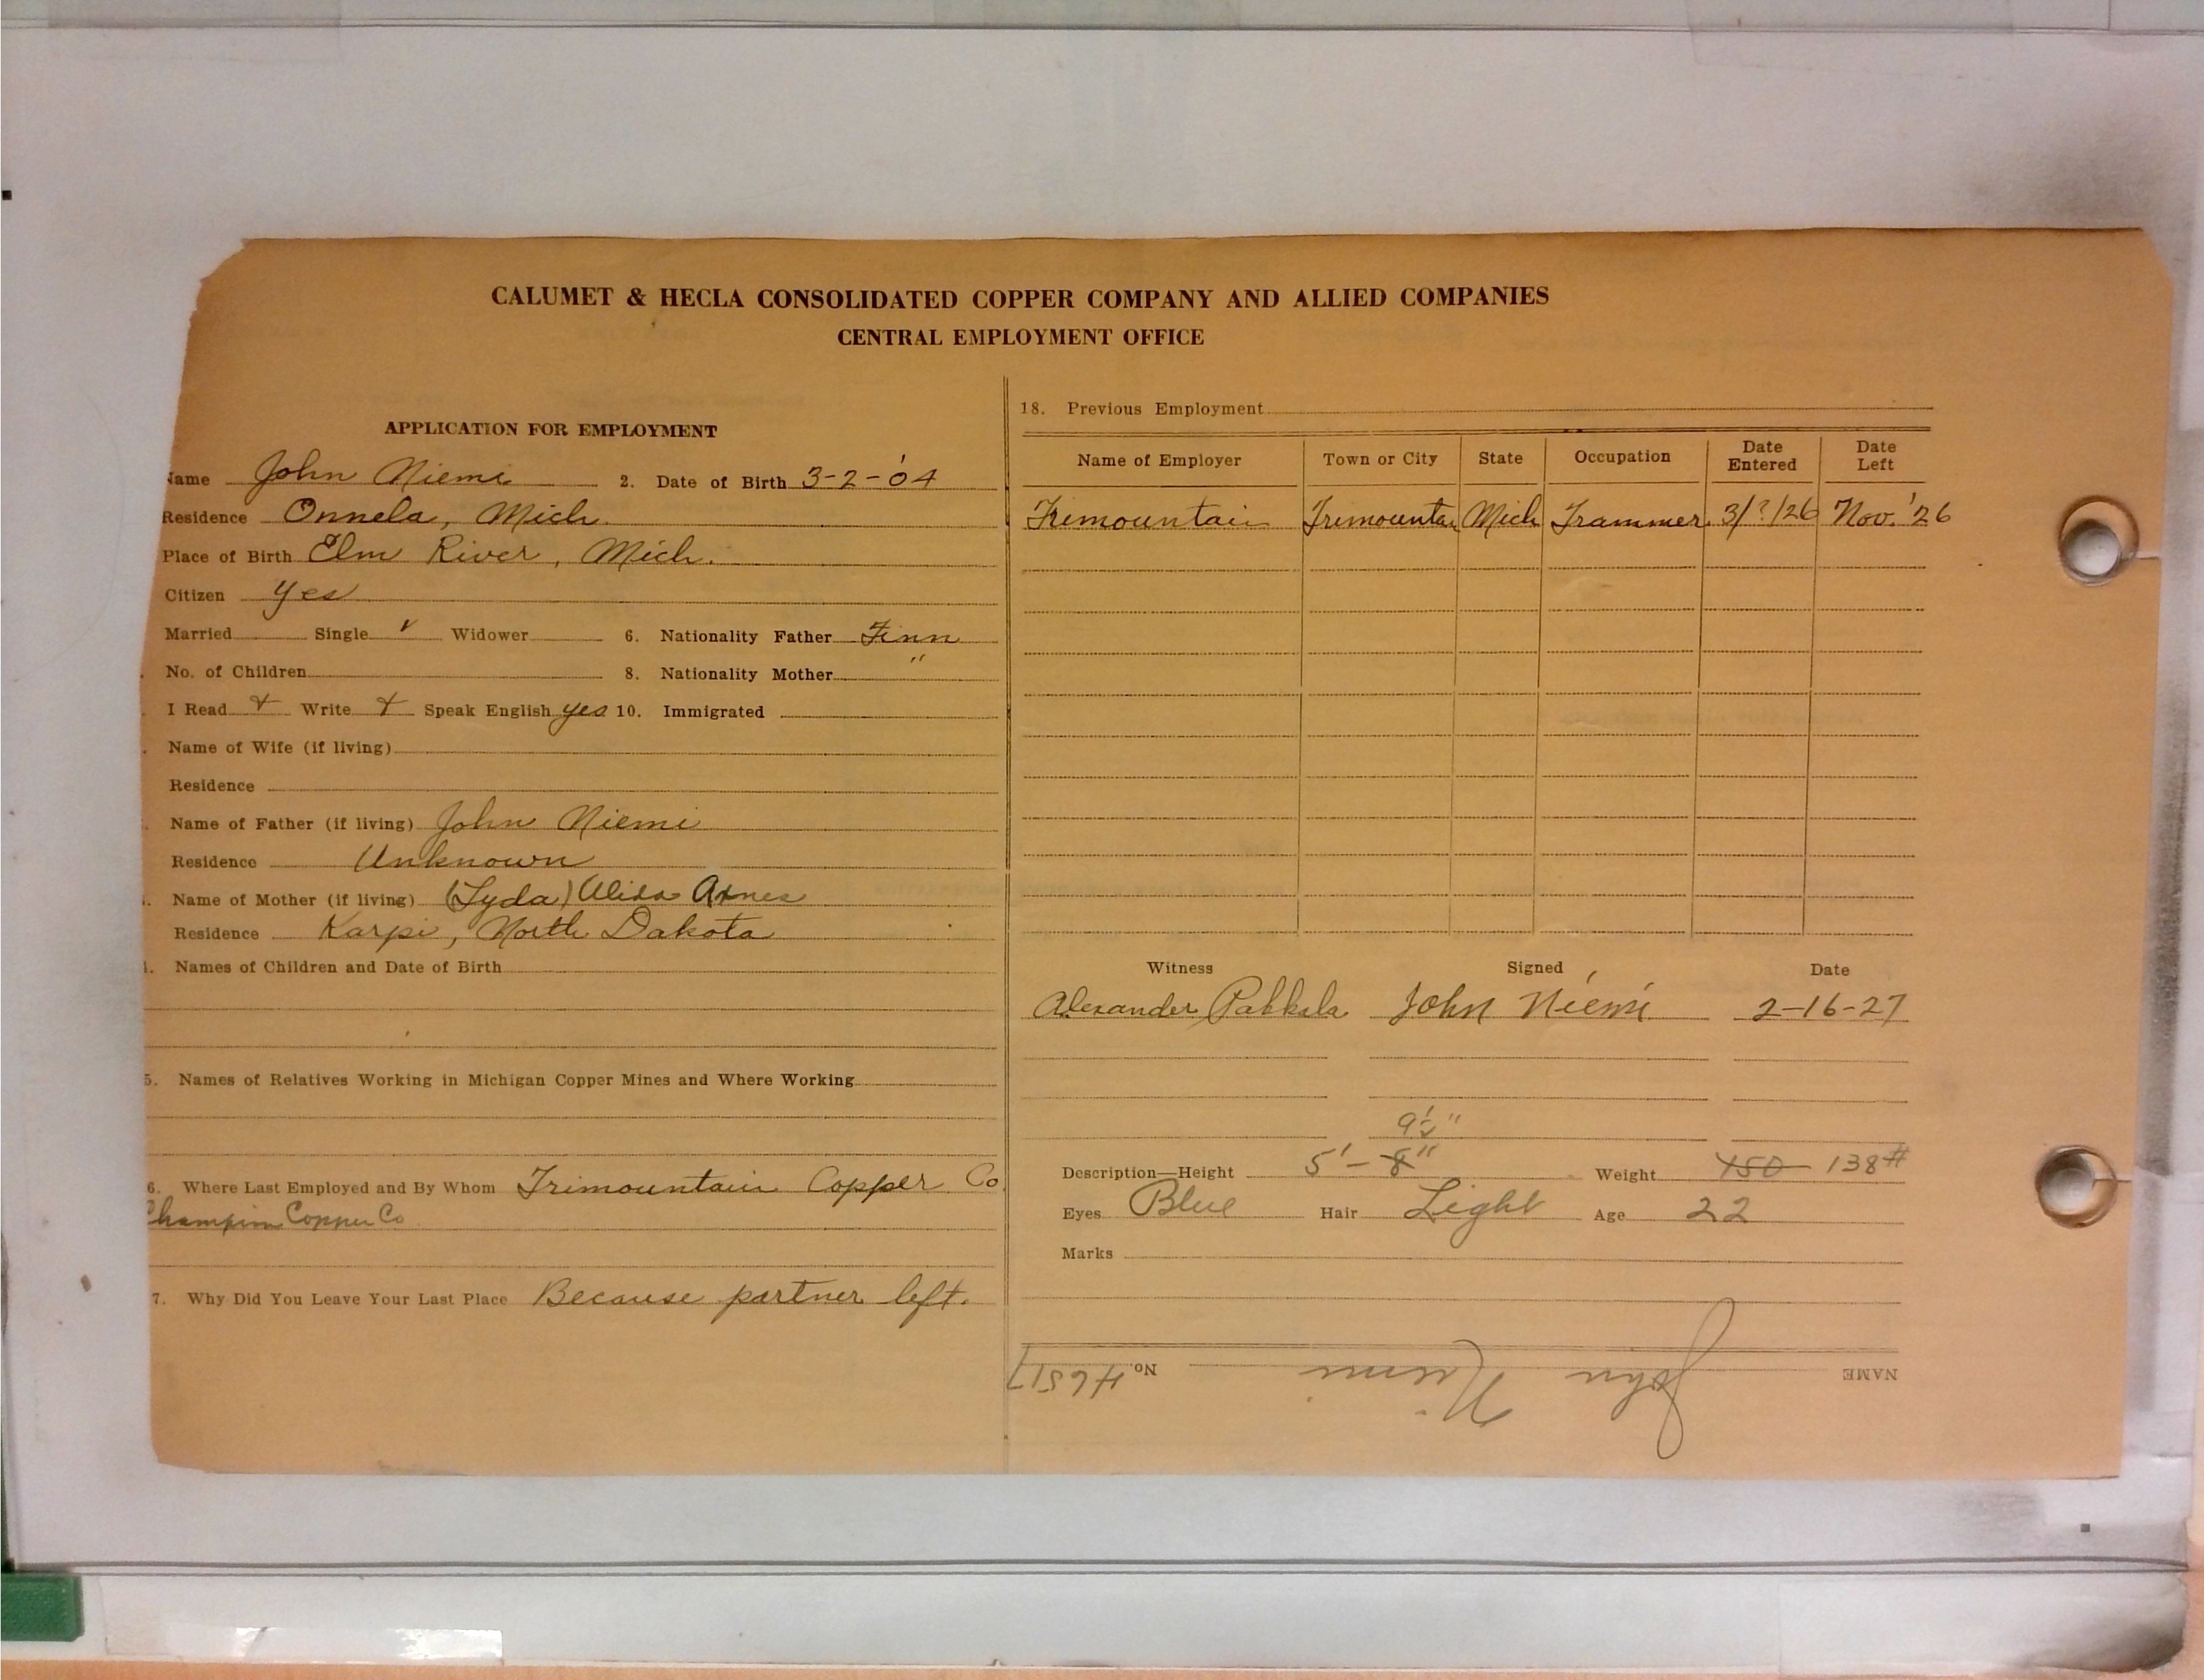 CALUMET & HECLA CONSOLIDATED COPPER COMPANY AND ALLIED COMPANIES
CENTRAL EMPLOYMENT OFFICE
APPLICATION FOR EMPLOYMENT
Name John Niemi 2. Date of Birth 3-2-'04
Residence Onnela, Mich.
Place of Birth Elm River, Mich.
Citizen yes
Married Single ✓ Widower 6. Nationality Father Finn
No. of Children 8. Nationality Mother "
I Read + Write + Speak English yes 10. Immigrated
Name of Wife (if living)
Residence
Name of Father (if living) John Niemi
Residence Unknown
Name of Mother (if living) (Lyda) Alida
Residence Karpi, North Dakota
Names of Children and Date of Birth
5. Names of Relatives Working in Michigan Copper Mines and Where Working
6. Where Last Employed and By Whom Trimountain Copper Co.
Champion Copper Co
7. Why Did You Leave Your Last Place Because partner left.
18. Previous Employment
Name of Employer Town or City State Occupation Date Entered Date Left
Trimountain Trimountain Mich Trammer 3/?/26 Nov. '26
Witness Signed Date
Alexander Pakkala John Niemi 2-16-27
9½"
Description—Height 5'-8" Weight 150 138#
Eyes Blue Hair Light Age 22
Marks
NAME John Niemi No. H6517